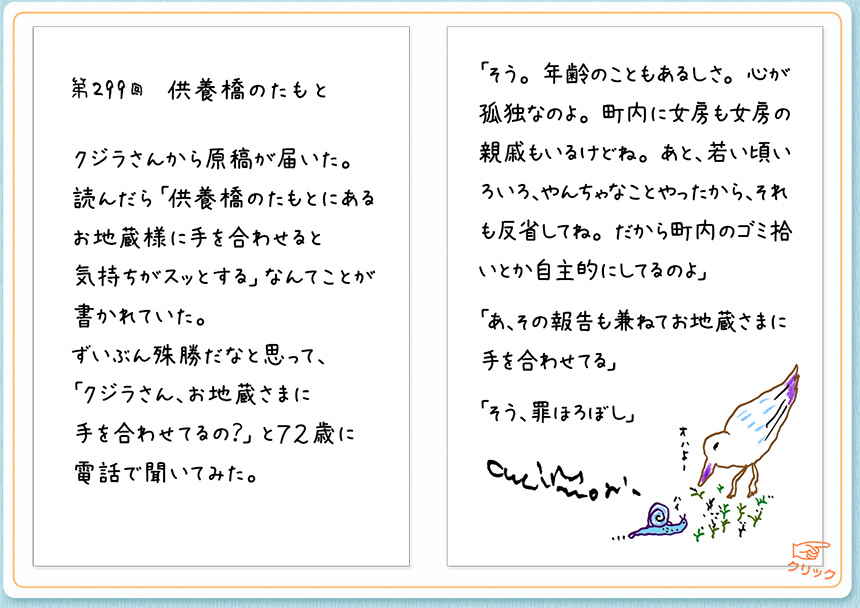 第299回 供養橋のたもと
クジラさんから原稿が届いた。
読んだら「供養橋のたもとにある
お地蔵様に手を合わせると
気持ちがスッとする」なんてことが
書かれていた。
ずいぶん殊勝だなと思って、
「クジラさん、お地蔵さまに
手を合わせてるの?」と72歳に
電話で聞いてみた。
「そう。年齢のこともあるしさ。心が
孤独なのよ。町内に女房も女房の
親戚もいるけどね。あと、若い頃い
ろいろ、やんちゃなことやったから、それ
も反省してね。だから町内のゴミ拾
いとか自主的にしてるのよ」
「あ、その報告も兼ねてお地蔵さまに
手を合わせてる」
「そう、罪ほろぼし」
オハよー
クリック